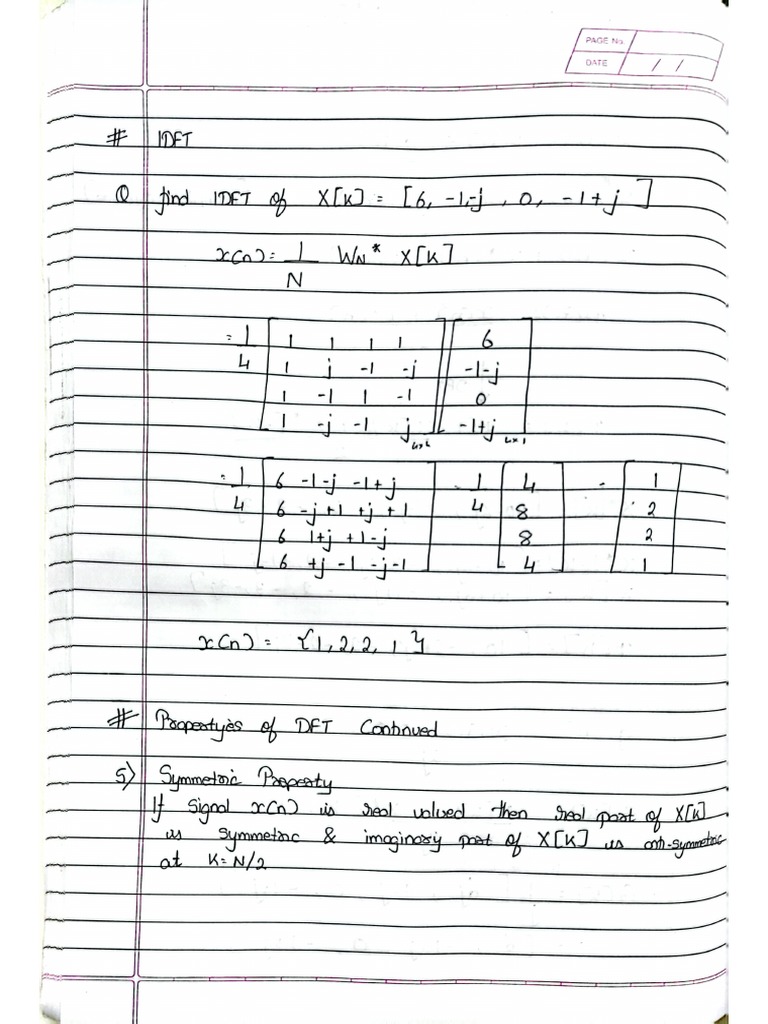 PAGE No.
DATE / /
# IDFT
Q find IDFT of X[K] = [6, -1-j, 0, -1+j]
x(n) = 1/N WN* X[K]
= 1/4 [1 1 1 1 [6
1 j -1 -j -1-j
1 -1 1 -1 0
1 -j -1 j]4x4 -1+j]4x1
= 1/4 [6 -1-j -1+j 1/4 [4 = [1
6 -j+1 +j+1 8 2
6 1+j +1-j 8 2
6 +j-1 -j-1] 4] 1]
x(n) = {1,2,2,1}
# Propertyies of DFT Continued
5) Symmetric Property
If Signal x(n) is real valued then real part of X[K]
is symmetric & imaginary part of X[K] is anti-symmetric
at K=N/2